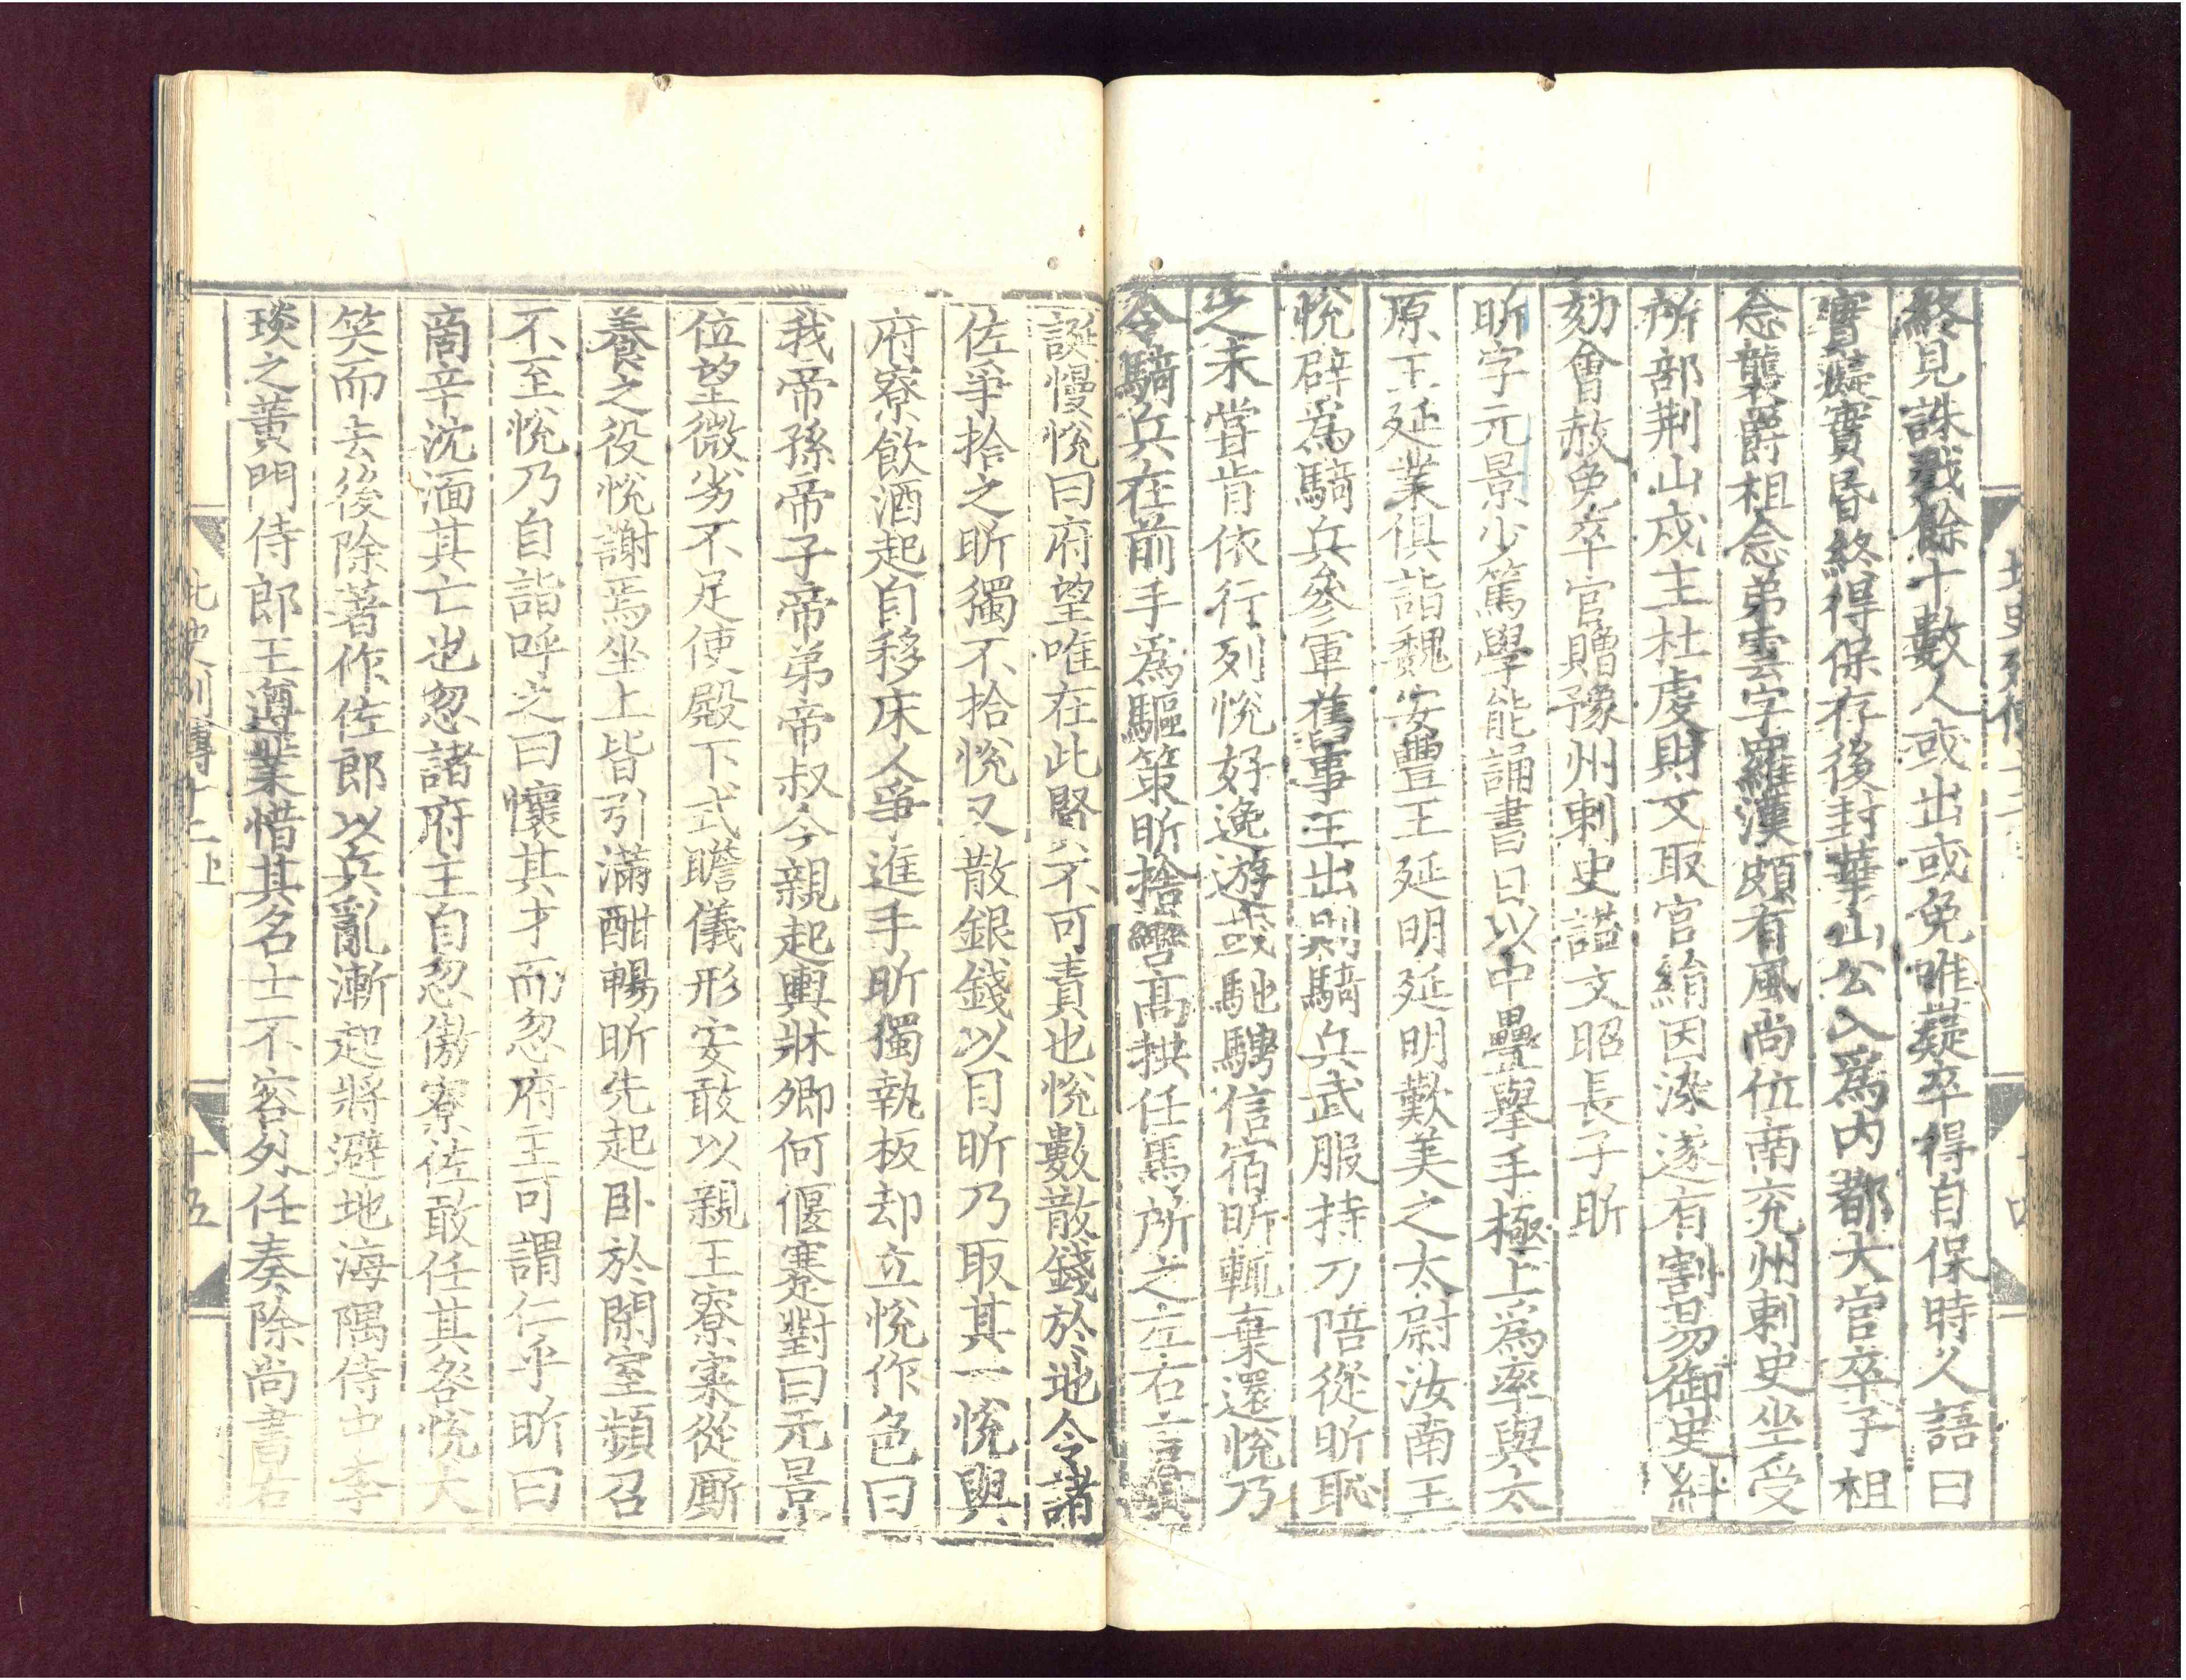 北史列傳十二
十四
終見誅戮餘十數人或出或免唯嶷卒得自保時人語曰
實癡實昏終得保存後封華山公入爲内都大官卒子祖
念襲爵祖念弟雲字羅漢頗有風尚位南兖州刺史坐受
所部荆山戍主杜虔財又取官絹因染遂有割易御史糾
劾會赦免卒官贈豫州刺史謚文昭長子昕
昕字元景少篤學能誦書日以中疊舉手極上爲率與太
原王延業俱詣魏安豐王延明延明歎美之太尉汝南王
悦辟爲騎兵參軍舊事王出則騎兵武服持刀陪從昕恥
之未嘗肯依行列悦好逸遊或馳騁信宿昕輒棄還悦乃
令騎兵在前手爲驅策昕捨轡高拱任馬所之左右言其
誕慢悦曰府望唯在此賢不可責也悦數散錢於地令諸
佐爭拾之昕獨不拾悦又散銀錢以目昕乃取其一悦與
府寮飲酒起自移床人爭進手昕獨執板却立悦作色曰
我帝孫帝子帝弟帝叔今親起輿牀卿何偃蹇對曰元景
位望微劣不足使殿下式瞻儀形安敢以親王寮寀從厮
養之役悦謝焉坐上皆引滿酣暢昕先起卧於閑室頻召
不至悦乃自詣呼之曰懷其才而忽府主可謂仁乎昕曰
商辛沈湎其亡也忽諸府主自忽傲寮佐敢任其咎悦大
笑而去後除著作佐郎以兵亂漸起將避地海隅侍中李
琰之黄門侍郎王遵業惜其名士不容外任奏除尚書右
北史列傳十二上
十五